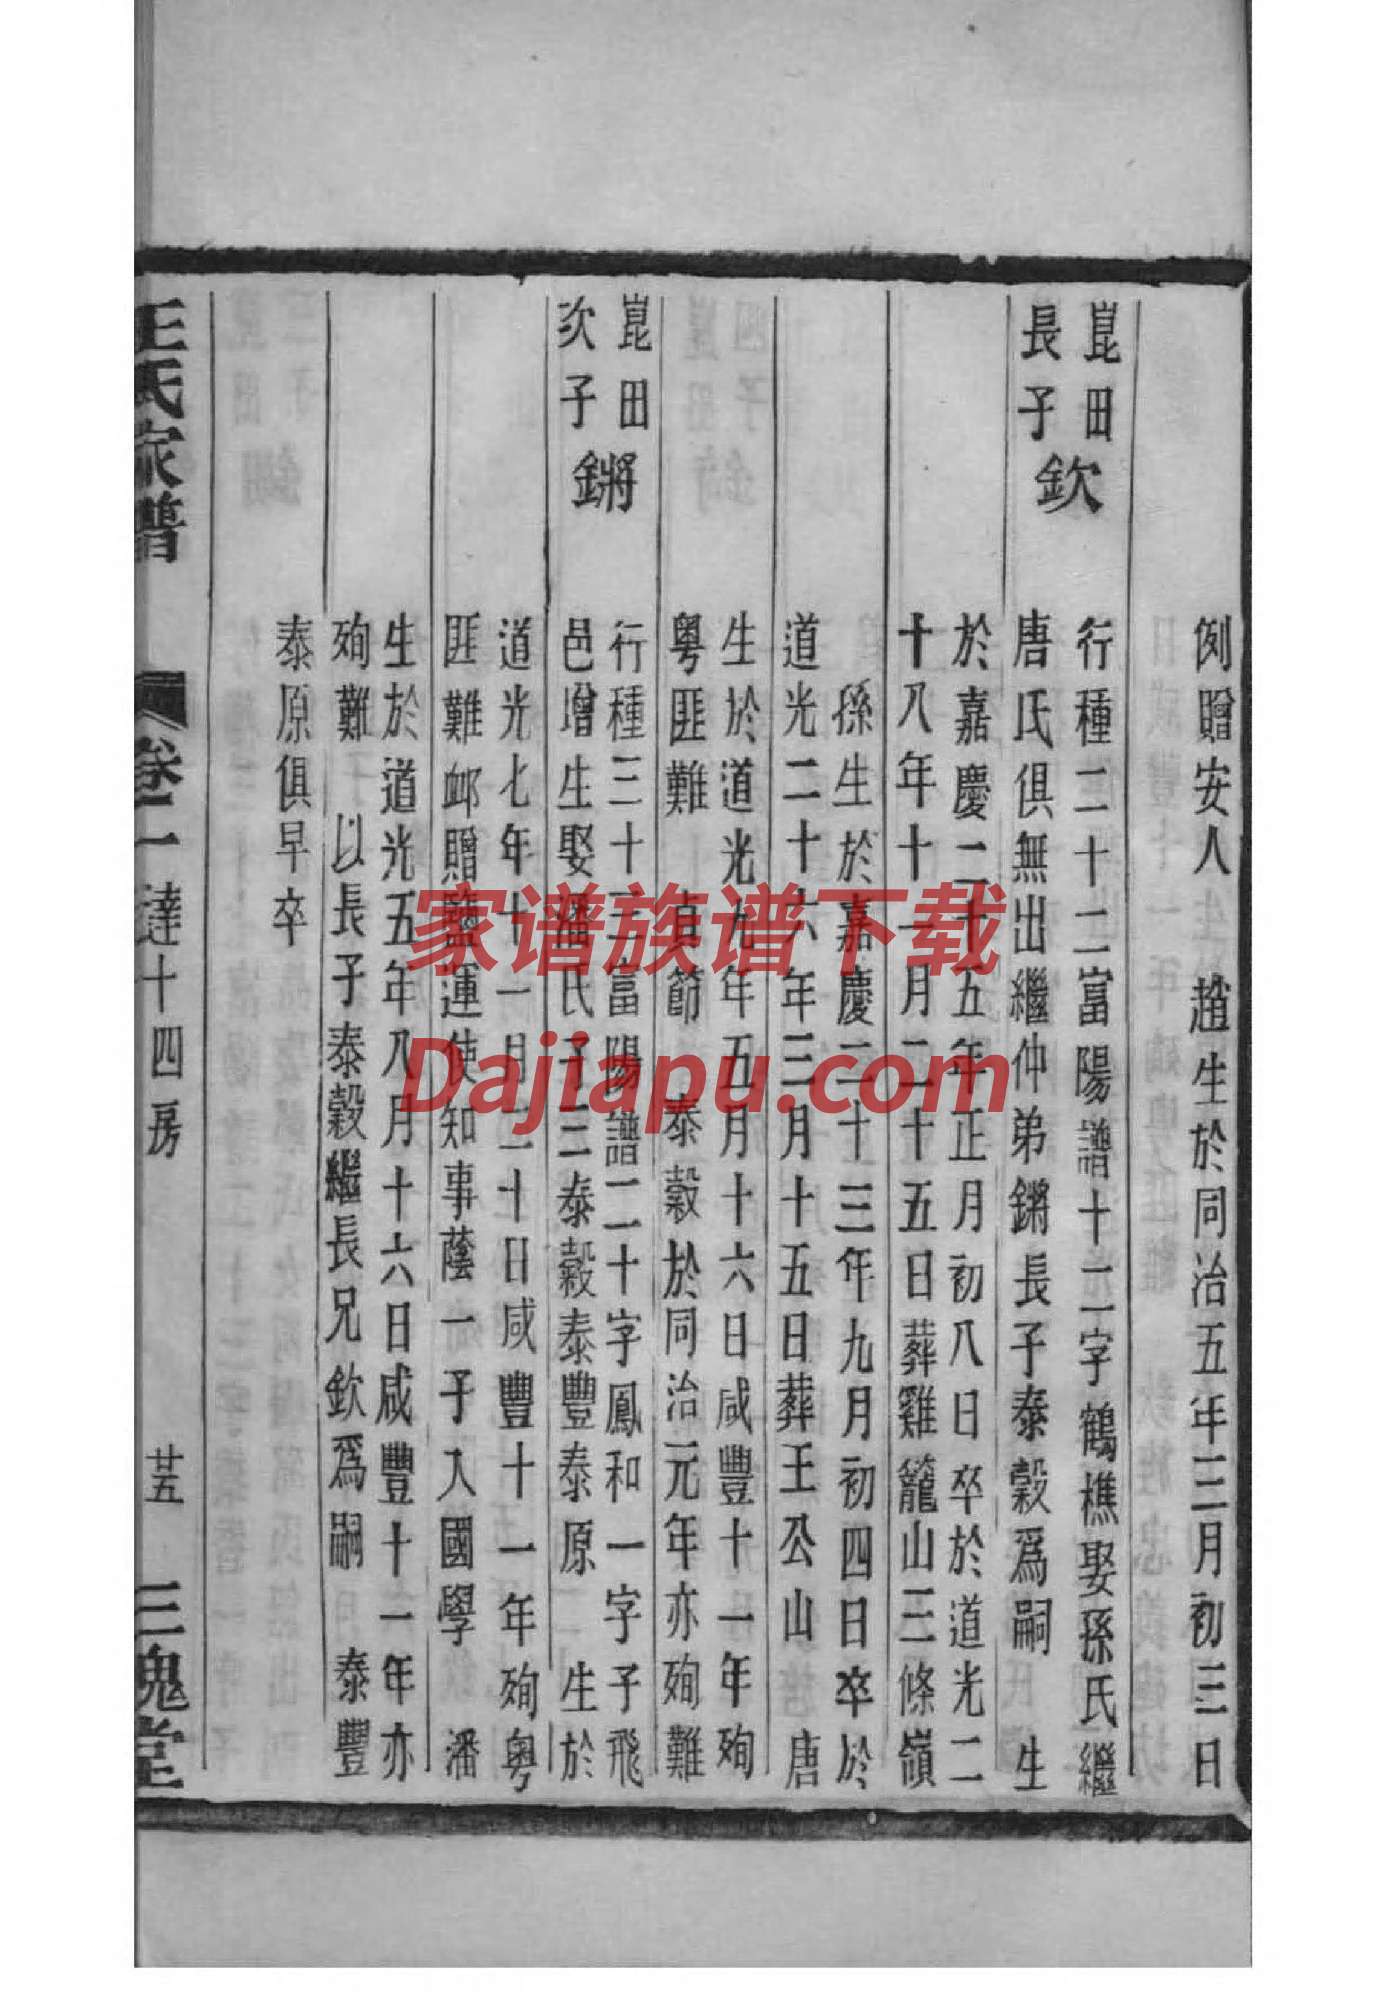 例贈安人　趙生於同治五年三月初三日
崑田
長子
欽
行種二十二富陽譜十二字鶴樵娶孫氏繼
唐氏俱無出繼仲弟鏘長子泰穀爲嗣　生
於嘉慶二十五年正月初八日卒於道光二
十八年十一月二十五日葬雞籠山三條嶺
孫生於嘉慶二十三年九月初四日卒於
道光二十六年三月十五日葬王公山　唐
生於道光九年五月十六日咸豐十一年殉
粵匪難　貞節　泰穀於同治元年亦殉難
崑田
次子
鏘
行種三十三富陽譜二十字鳳和一字子飛
邑增生娶潘氏子三泰穀泰豐泰原　生於
道光七年十一月二十日咸豐十一年殉粵
匪難䘏贈鹽運使知事蔭一子入國學　潘
生於道光五年八月十六日咸豐十一年亦
殉難　以長子泰穀繼長兄欽爲嗣　泰豐
泰原俱早卒
王氏家譜　卷二　達十四房　廿五　三槐堂
家谱族谱下载
Dajiapu.com